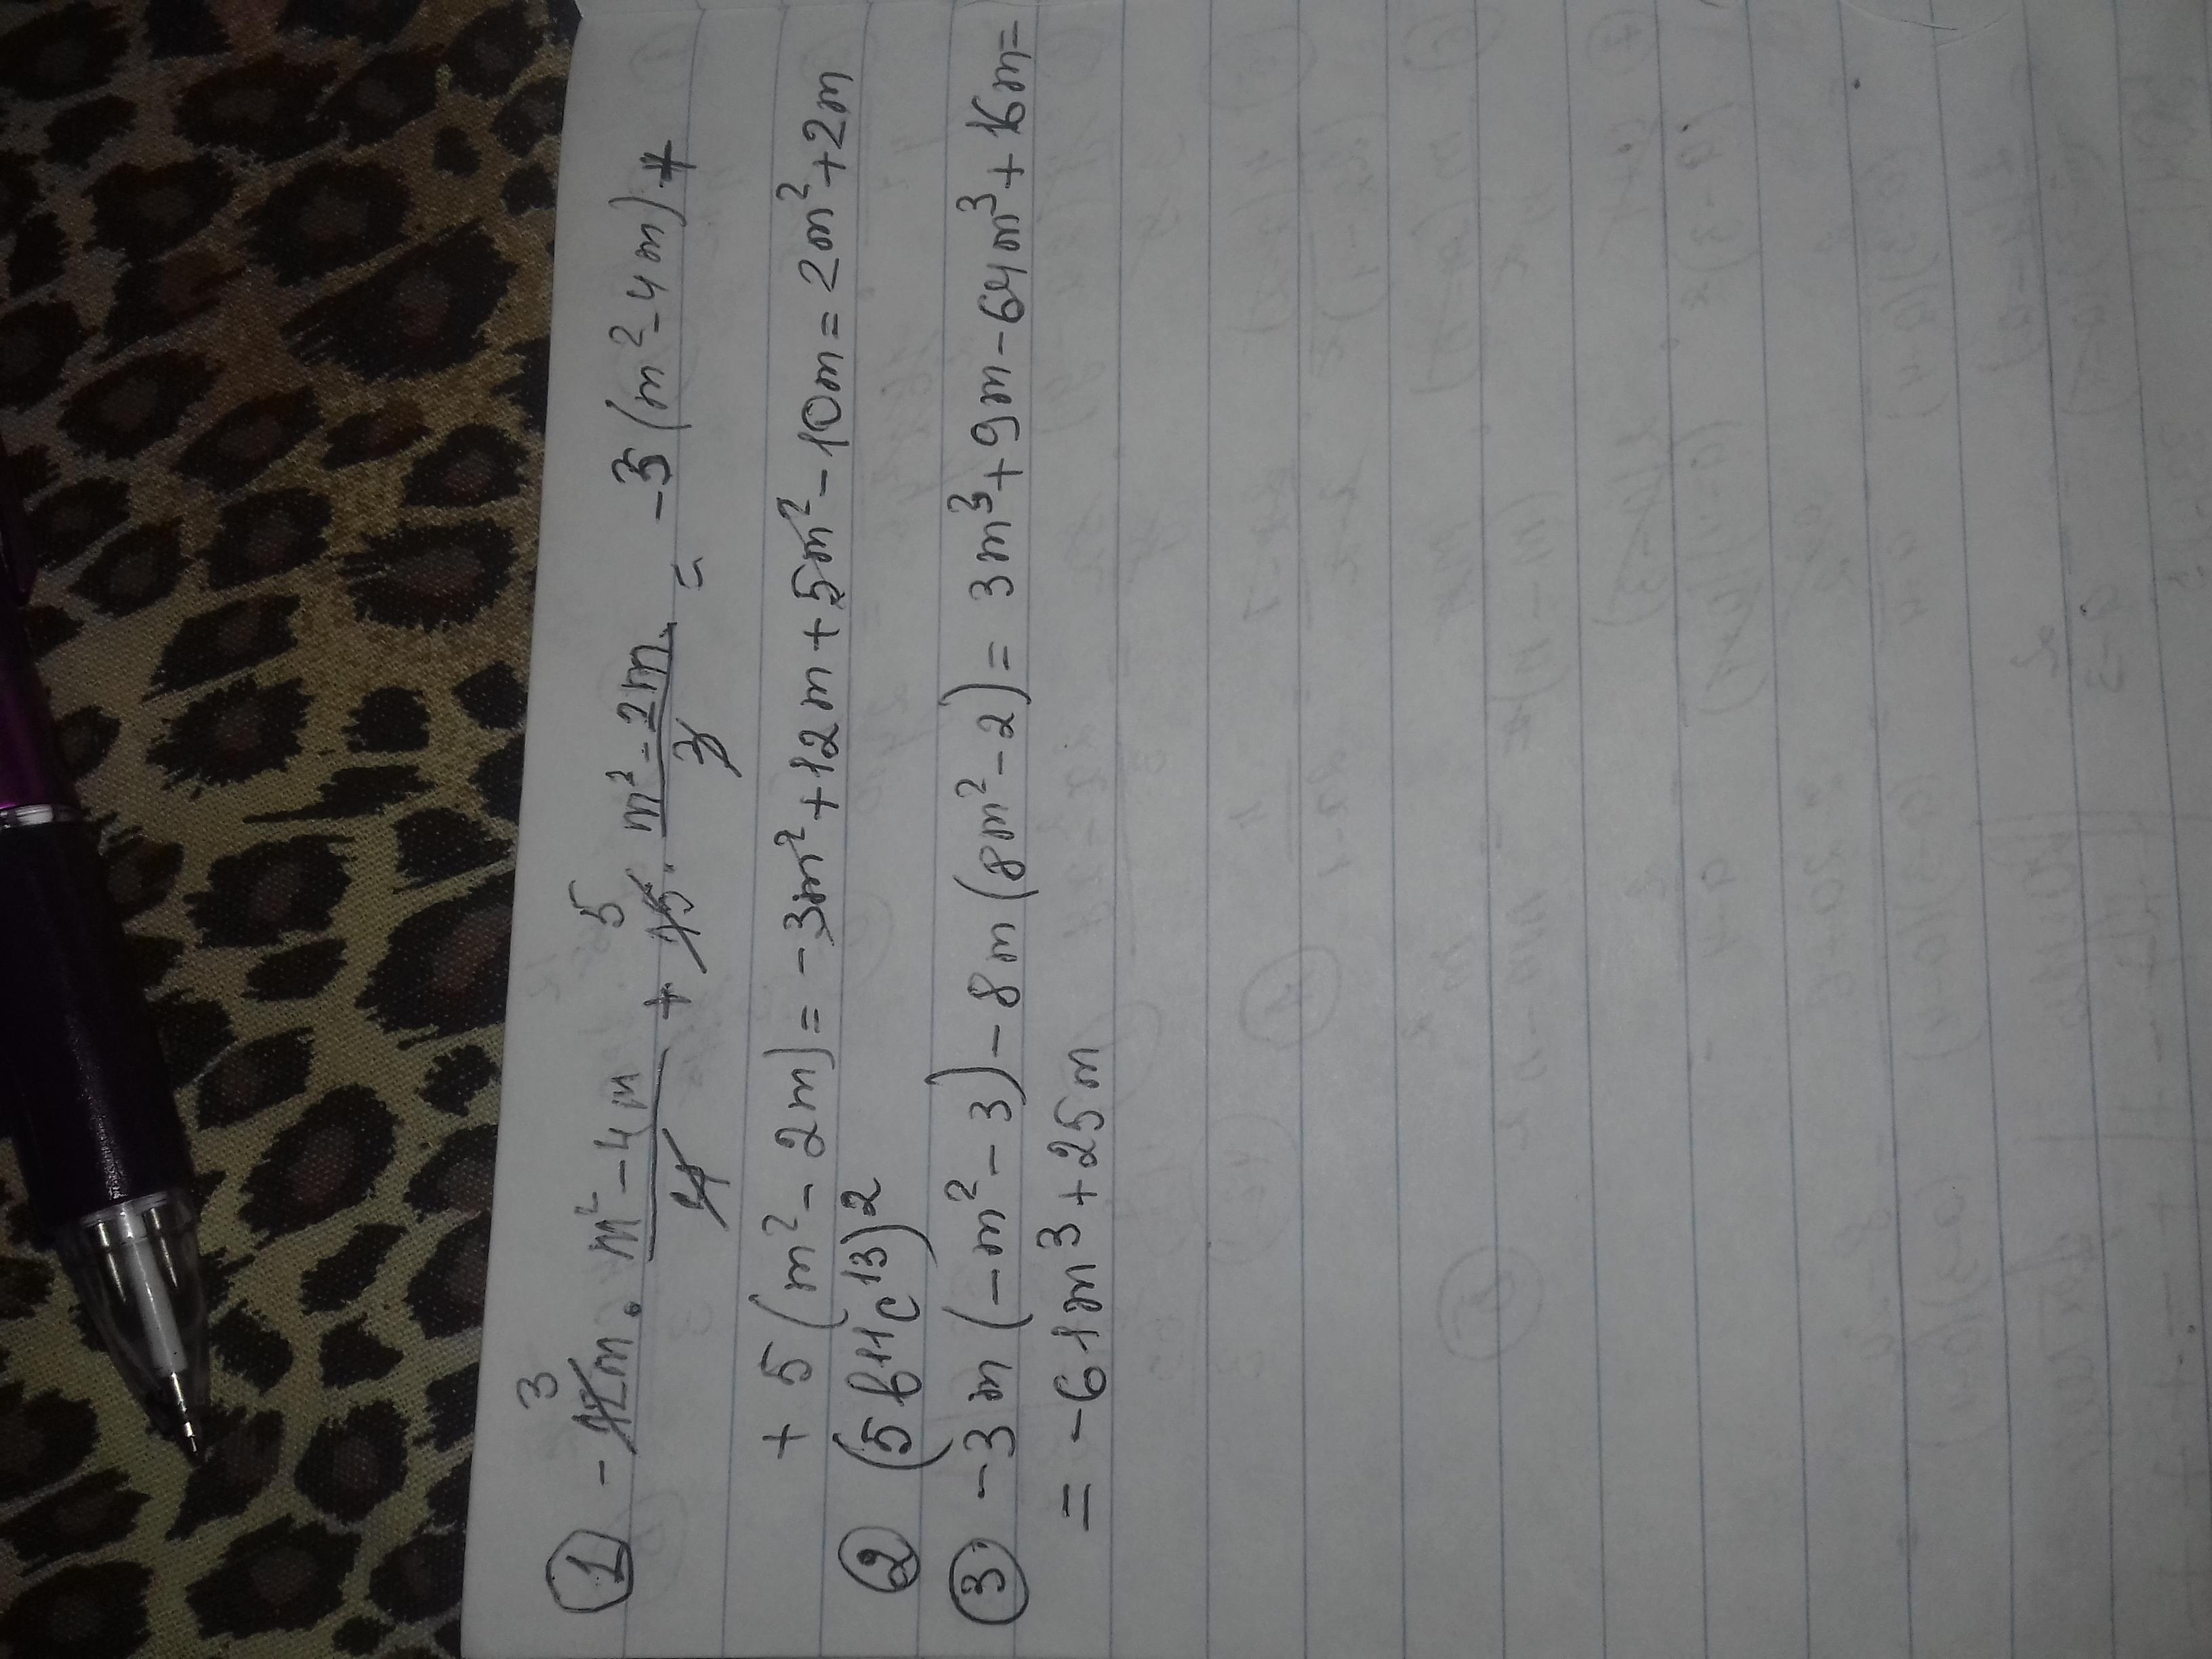 ① -12m · m²-4m/4 + 15 · m²-2m/3 = -3(m²-4m)+
3 5
+ 5(m²-2m) = -3m²+12m+5m²-10m = 2m²+2m
② (5b¹¹c¹³)²
③ -3m(-m²-3)-8m(8m²-2) = 3m³+9m-64m³+16m=
= -61m³+25m